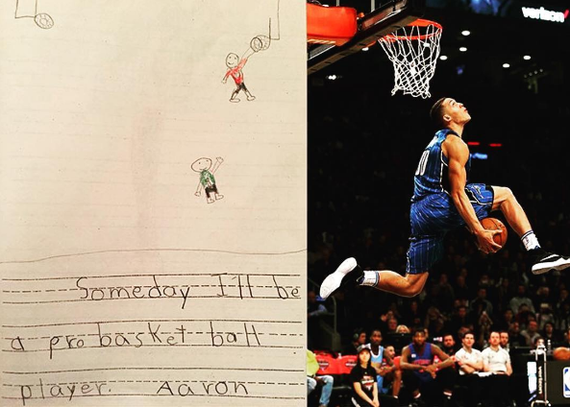 Someday I'll be
a pro basket ball
player. Aaron
verizon